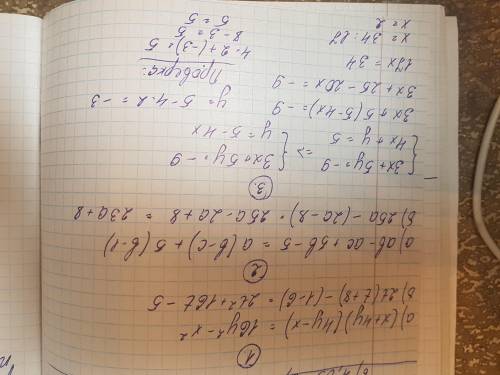 ①
а) (x+4y)(4y-x) = 16y² - x²
б) 2t(t+8) - (1-6) = 2t² + 16t - 5
②
а) ab - ac + 5b - 5 = a(b-c) + 5(b-1)
б) 25a - (2a-8) = 25a - 2a + 8 = 23a+8
③
{3x+5y=-9 {3x+5y=-9
4x+y=5 => y=5-4x
3x+5(5-4x)=-9
3x+25-20x=-9
17x=34
x=34:17
x=2
y=5-4·2=-3
Проверка:
4·2+(-3)=5
8-3=5
5=5